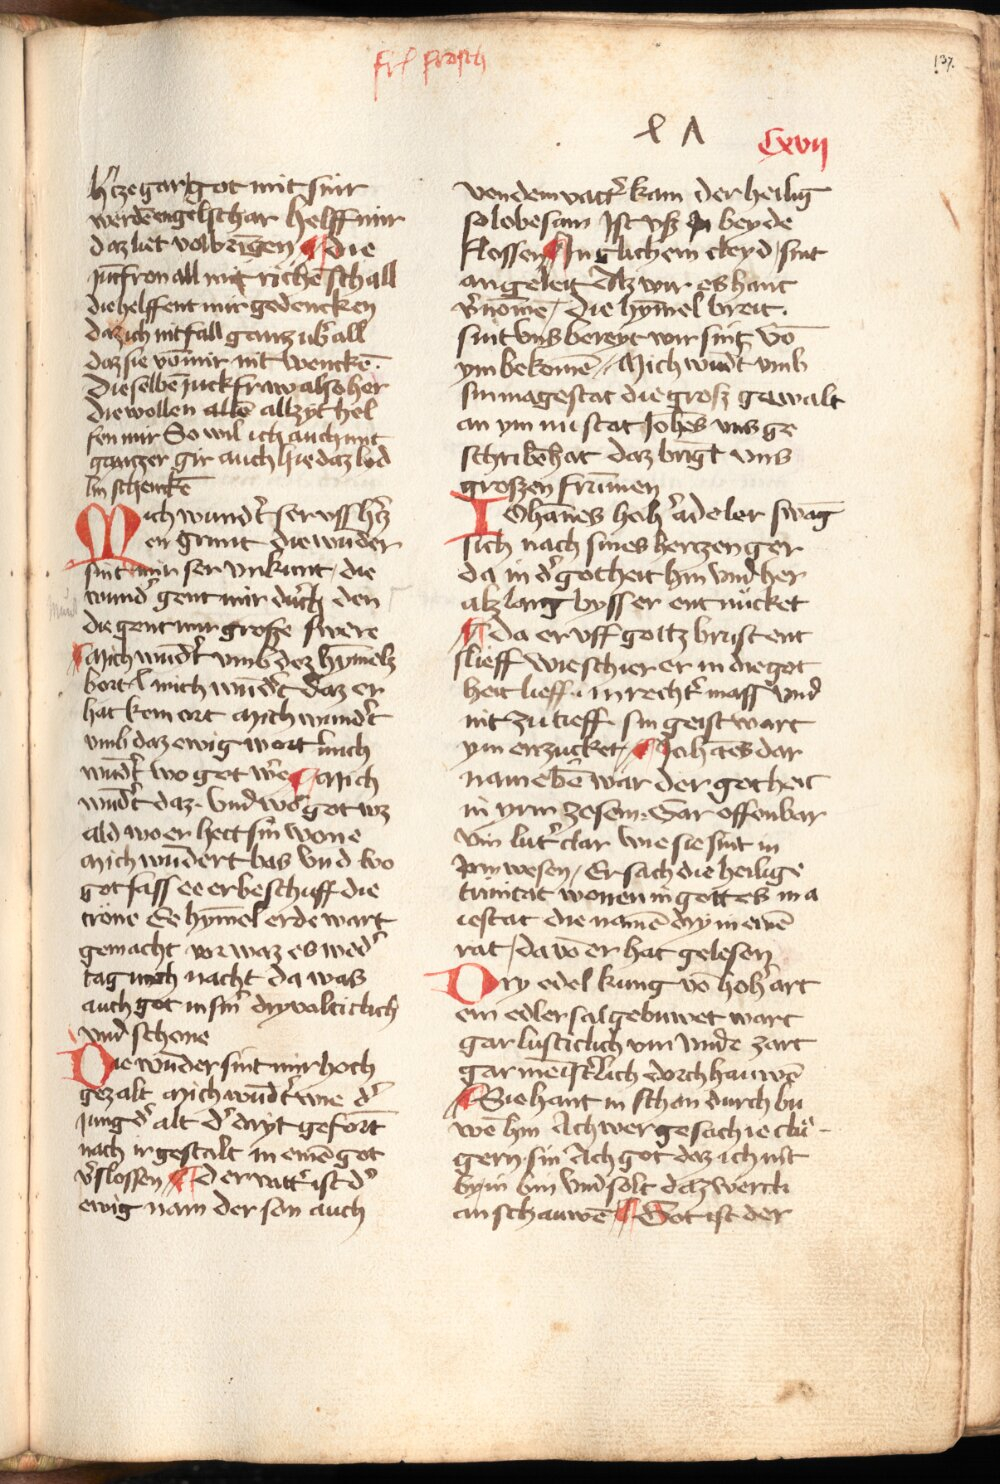 frͦ frosch
137.
x A
Cxvij
h'tze gar got mit siner
werdē engel schar helff mir
daz liet volbringen ¶ die
jūcfron all mit richē schall
die helffent mir gedencken
daz ich nit fall gantz vb'all
daz sie vō mir nit wenckē.
Die selbē juckfraw also her
die wollen allē allzyt hel
fen mir So wil ich auch mit
gantzer gir auch hie daz lied
lin schenckē
Mich wund't ser vss h'tz
en grunt die wūder
sint mir ser vnkunt / die
wund' gent mir durch den
die gent mir große swere
¶ Mich wūd't vmb dez hymelz
bort mich wūd't daz er
hat kem ort Mich wund't
vmb daz ewig wort mich
wūd't wo got w'e ¶ Mich
wūd't daz. vnd wo got wz
ald wo er hett sin wone
Mich wūdert bas vnd wo
got sass ee er beschuff die
trone Ee hymel erde wart
gemacht vor waz es wed'
tag noch nacht da was
auch got in sin' dryvalticlich
vnd schone
Die wūder sint mir hoch
gezalt Mich wūd't wie d'
jung d' alt d' dryt gefort
nach ir gestalt in einē got
v'slossen ¶ der vatt' ist d'
ewig nam der son auch
von dem vatt' kam der heilig
so lobesam Ist vß in beyde
flossen ¶ In glichem cleyd sint
an geleit Alz wir es hant
v'nomē / die hymel breit.
sint vns bereyt wir sint vō
ym bekomē / Mich wūd't vmb
sin magestat die groß gewalt
an ym nu stat Joh'es vns ge
schribē hat daz bringt vns
großen frumen
Iohānes hoh' adeler swāg
sich nach sines hertzen ger
da in d' gotheit hin vnd her
alz lang bysser entnücket
¶ da er vff gottz brust ent
slieff wie schier er in die got
heit lieff. in recht' mass vnd
nit zu tieff. sin geist wart
ym enzucket / ¶ Johānes dar
namebē war der gotheit
in yrm zesem. Gar offenbar
vin lut' clar wie sie sint in
jrm wesen / Er sach die heilige
trinitat wonen in gottes ma
iestat die namē dry in einē
rat / da vō er hat gelesen
Dry edel kung vō hoh' art
ein edler sal gebuwet wart
gar lusticlich vin vnde zart
gar meist'lich dorch hauwē
¶ Sie hant in schan durch bu
wē hin Ach wer gesach ie clu'
gern sin Ach got daz ich nit
by in bin vnd solt daz werck
an schauwē ¶ Got ist der